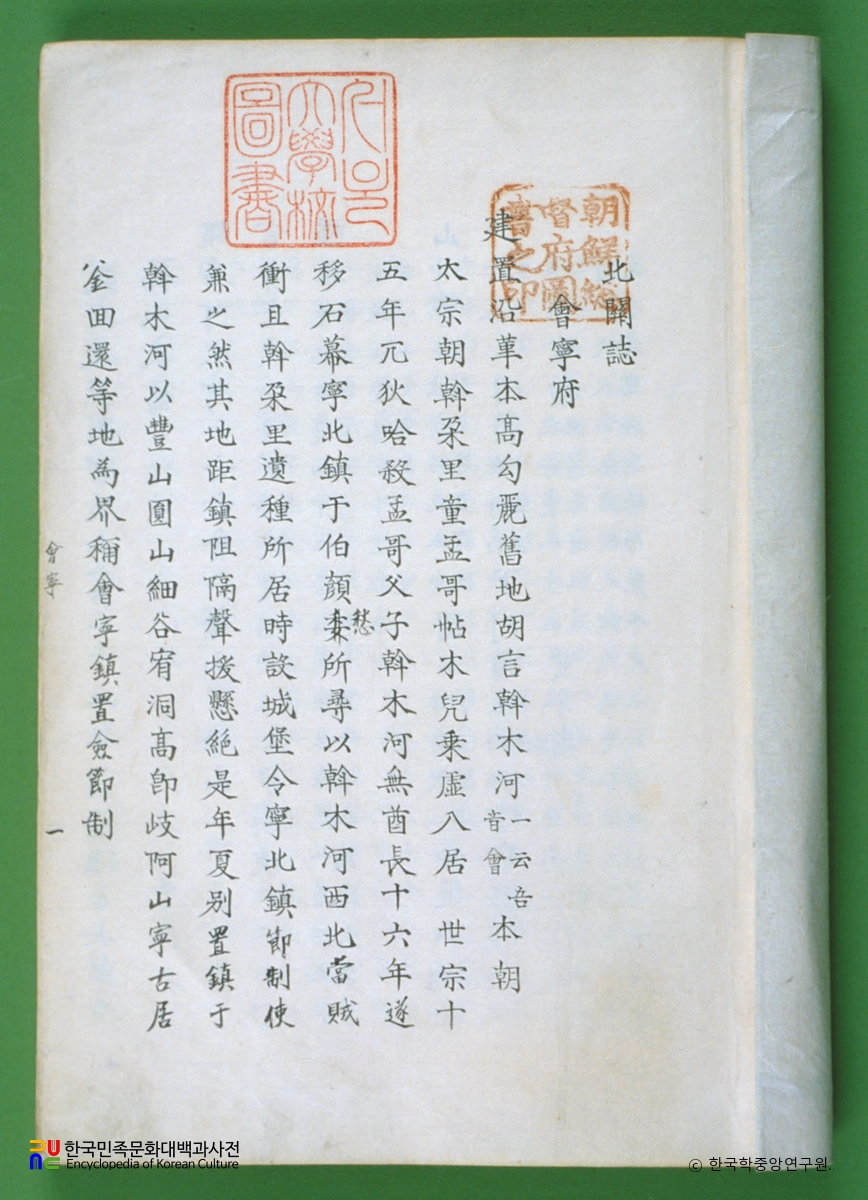 北關誌
會寧府
建置沿革本高勾麗舊地胡言斡木河一云吾音會本朝
太宗朝斡朶里童孟哥帖木兒乘虛入居 世宗十
五年兀狄哈殺孟哥父子斡木河無酋長十六年遂
移石幕寧北鎮于伯顔愁所尋以斡木河西北當賊
衝且斡朶里遺種所居時設城堡令寧北鎮節制使
兼之然其地距鎮阻隔聲援懸絶是年夏别置鎮于
斡木河以豐山圓山細谷宥洞高郎岐阿山寧古居
釜回還等地為界稱會寧鎮置僉節制
會寧
一
朝鮮總督府圖書之印
大學校圖書
한국민족문화대백과사전
Encyclopedia of Korean Culture
© 한국학중앙연구원.